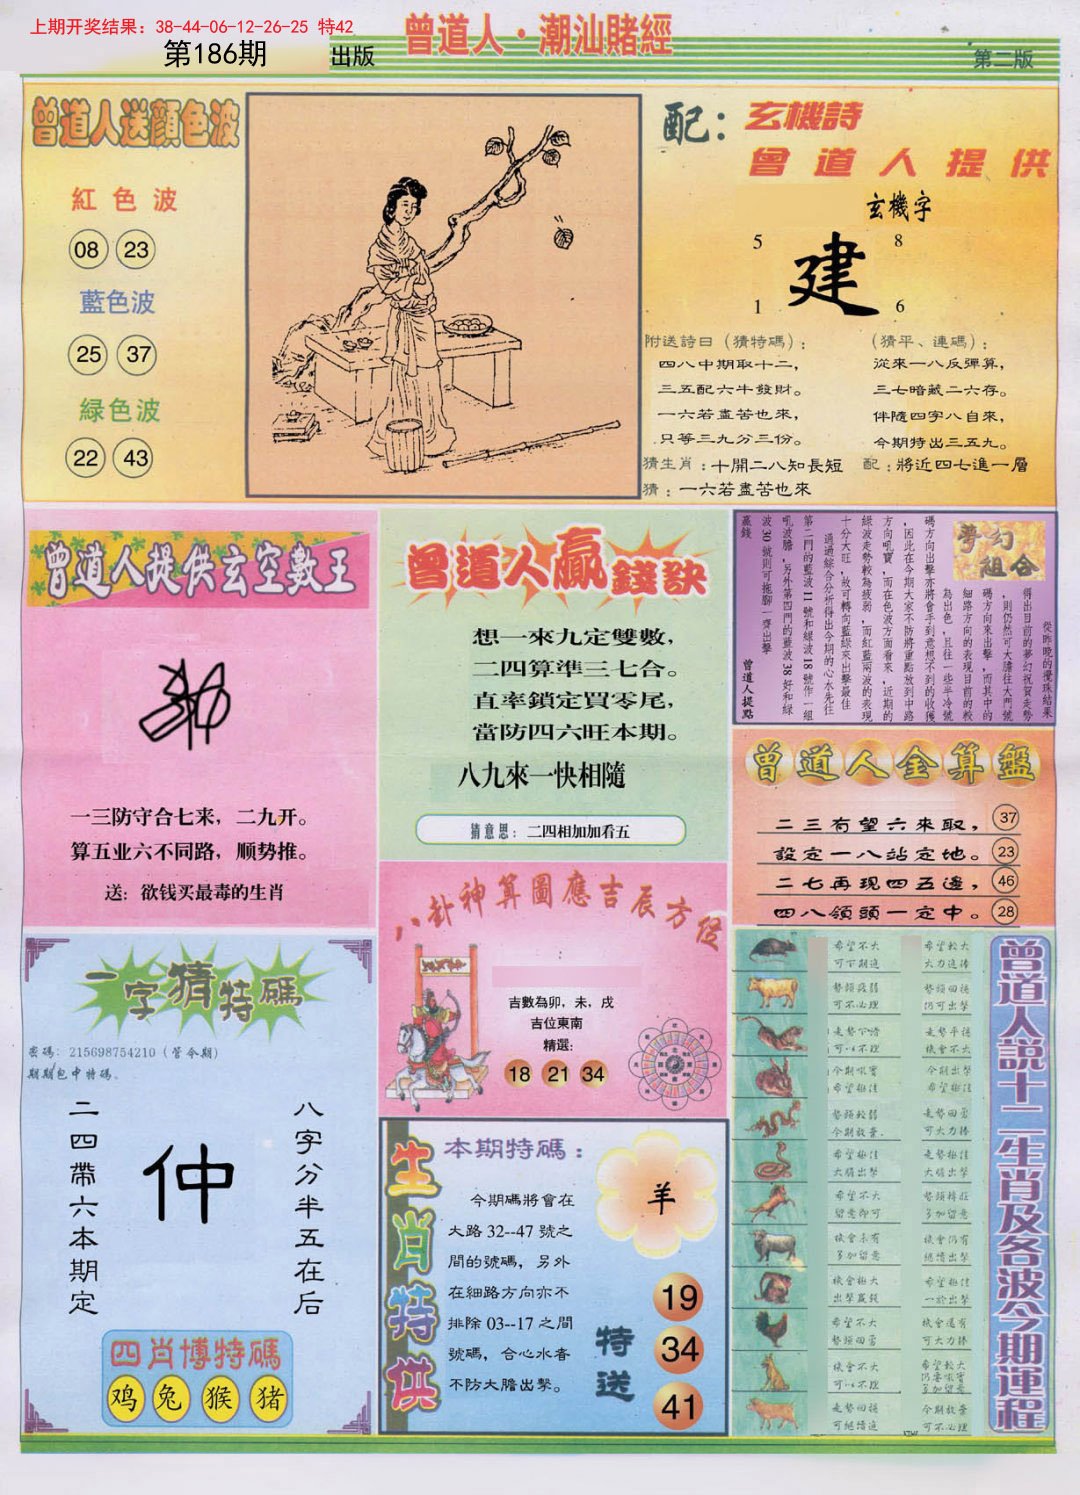 上期开奖结果：38-44-06-12-26-25 特42
第186期
出版
曾道人·潮汕賭經
第二版
曾道人送顔色波
紅色波
08 23
藍色波
25 37
緑色波
22 43
配：玄機詩
曾道人提供
玄機字
5 8
建
1 6
附送詩曰（猜特碼）：
四八中期取十二，
三五配六牛發財。
一六若盡苦也來，
只等三九分三份。
猜生肖：十開二八知長短
猜：一六若盡苦也來
（猜平、連碼）：
從來一八反彈算，
三七暗藏二六存。
伴隨四字八自來，
今期特出三五九。
配：將近四七進一層
曾道人提供玄空數王
一三防守合七来，二九开。
算五业六不同路，顺势推。
送：欲钱买最毒的生肖
曾道人贏錢訣
想一來九定雙數，
二四算準三七合。
直率鎖定買零尾，
當防四六旺本期。
八九來一快相隨
猜意思：二四相加加看五
夢幻組合
從昨晚的攪珠結果
得出目前的夢幻祝賀走勢
，則仍然可大膽往大門號
碼方向來出擊，而其中的
細路方向的表現目前的較
為出色，且往一些半冷號
碼方向出擊亦將會手到意想不到的收獲
，因此在今期大家不防將重點放到中路
方向吼寶，而在色波方面看來，近期的
綠波走勢較為疲弱，而紅藍兩波的表現
十分大旺，故可轉向藍綠來出擊最佳
通過綜合分析得出今期的心水先往
第二門的藍波11號和綠波18號作一組
吼波膽，另外第四門的藍波38好和綠
波30號則可拖腳一齊出擊
贏錢
曾道人提點
曾道人金算盤
二三有望六來取， 37
設定一八站定地。 23
二七再現四五邊， 46
四八領頭一定中。 28
八卦神算圖應吉辰方位
吉數為卯，未，戌
吉位東南
精選：
18 21 34
一字猜特碼
密碼：215698754210（管令期）
期期包中特碼。
二四帶六本期定
仲
八字分半五在后
四肖博特碼
鸡 兔 猴 猪
生肖特供
本期特碼：
今期碼將會在
大路32--47號之
間的號碼，另外
在細路方向亦不
排除03--17之間
號碼，合心水者
不防大膽出擊。
羊
特送
19
34
41
曾道人說十二生肖及各波今期運程
希望不大
可下期追
希望較大
大力追捧
勢頭疲弱
可不必理
勢頭回穩
仍可出擊
走勢平穩
機會不大
今期出擊
希望極佳
勢頭較弱
今期放棄
走勢回勇
可大力捧
希望極佳
大膽出擊
走勢極佳
大膽出擊
希望不大
留意即可
勢頭轉旺
多加留意
機會未有
多加留意
機會仍有
繼續出擊
機會極大
出擊贏錢
希望極佳
一於出擊
希望不大
勢頭回勇
機會還有
可大力捧
機會不大
可不必理
希望較大
仍要吼實
多加留意
走勢回穩
可繼續追
今期放棄
可不必理